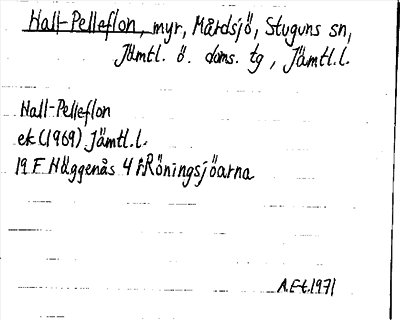 Hall-Pelleflon, myr, Mårdsjö, Stuguns sn,
Jämtl. ö. doms. tg, Jämtl.l.
Hall-Pelleflon
ek (1969) Jämtl.l.
19 F Häggenås 4 i Röningsjöarna
A.E-t.1971